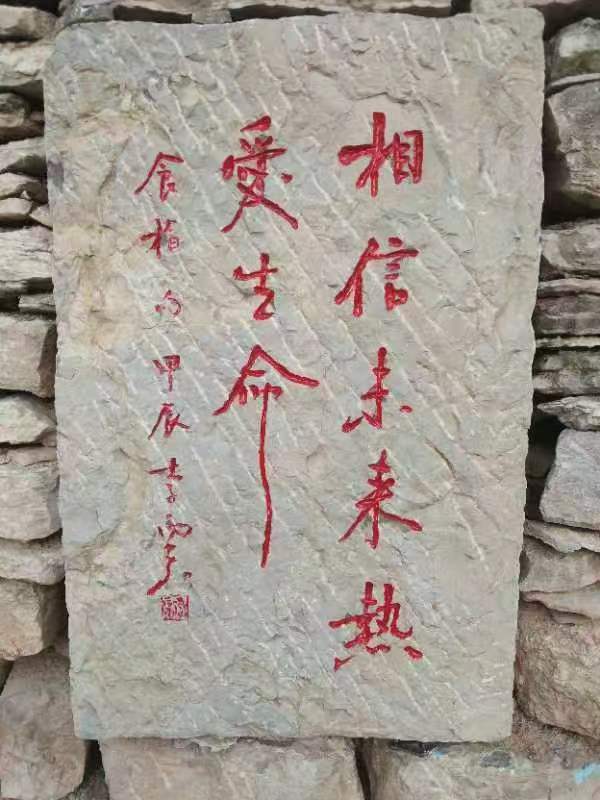 相信未来热
爱生命
食指句 甲辰 李